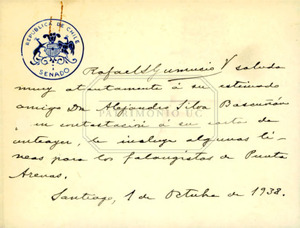 REPUBLICA DE CHILE
SENADO
Rafael L Gumucio V saluda
muy atentamente á su estimado
amigo Dn Alejandro Silva Bascuñán
en contestación á su carta de
anteayer, le incluye algunas lí-
neas para los falangistas de Punta
Arenas.
PATRIMONIO UC
Santiago, 1 de Octubre de 1938.